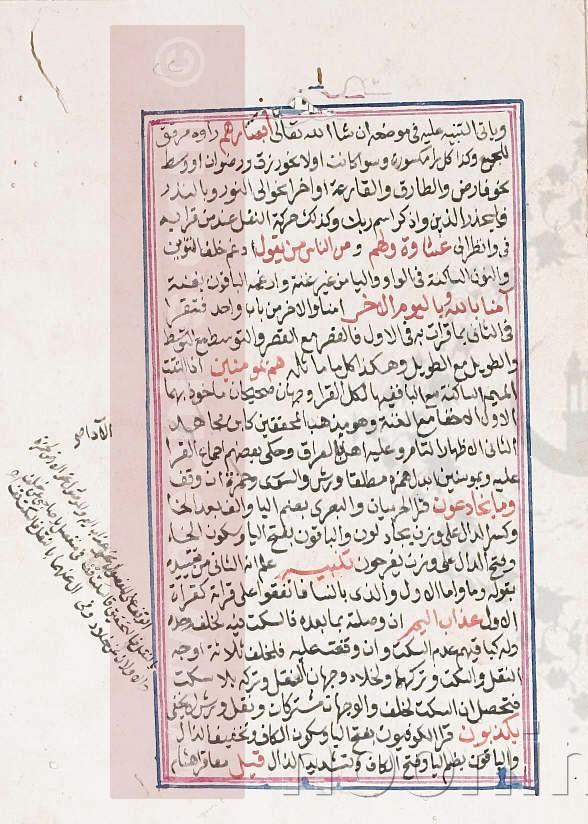 وياتى التنبيه عليه فى موضعه ان شا الله تعالى أبصارهم راوه مرقق
للجميع وكذا كل را مكسورة وسوا كانت اولا نحو رزق ورضوان او وسط
نحو فارض والطارق والقارعة او اخرا نحو الى النور وبالنذر
فليحذر الذين واذكر اسم ربك وكذلك حركة النقل عند من قرا به
نحو وانظر الى غشاوة ولهم و من الناس من يقول ادغم خلف التنوين
والنون الساكنة فى الواو واليا من غير غنة وادغمه الباقون بغنة
آمنا بالله وباليوم الآخر امنا والاخر من باب واحد فتقرا
فى الثانى بما قرات به فى الاول فالقصر مع القصر والتوسط مع التوسط
والطويل مع الطويل وهكذا كل ما ماثله هم بمومنين اذا التقت
الميم الساكنة مع البا ففيها لكل القرا وجهان صحيحان ماخوذ بهما
الاول الاخفا مع الغنة وهو مذهب المحققين كابن مجاهد
الثانى الاظهار التام وعليه اهل العراق وحكى بعضهم اجماع القرا
عليه وبمومنين ابدل همزه مطلقا ورش والسوسى وحمزة ان وقف
وما يخادعون قرا الحرميان والبصرى بضم اليا والف بعد الخا
وكسر الدال على وزن يجادلون والباقون بفتح اليا وسكون الخا
وفتح الدال على وزن يفرحون تنبيه علم انه الثانى من تقييده
بقوله وما واما الاول والذى بالنسا فاتفقوا على قراته كقراة
الاول عذاب اليم ان وصلته بما بعده فالسكت فيه لخلف وحده
وله كباقيهم عدم السكت وان وقفت عليه فلخلف ثلاثة اوجه
النقل والسكت وتركهما ولخلاد وجهان النقل وتركه بلا سكت
فتحصل ان السكت لخلف والوجهان مشتركان ونقل ورش لا يخفى
يكذبون قرا الكوفيون بفتح اليا وسكون الكاف وتخفيف الذال
والباقون بضم اليا وفتح الكاف وتشديد الذال قيل معا قرا هشام